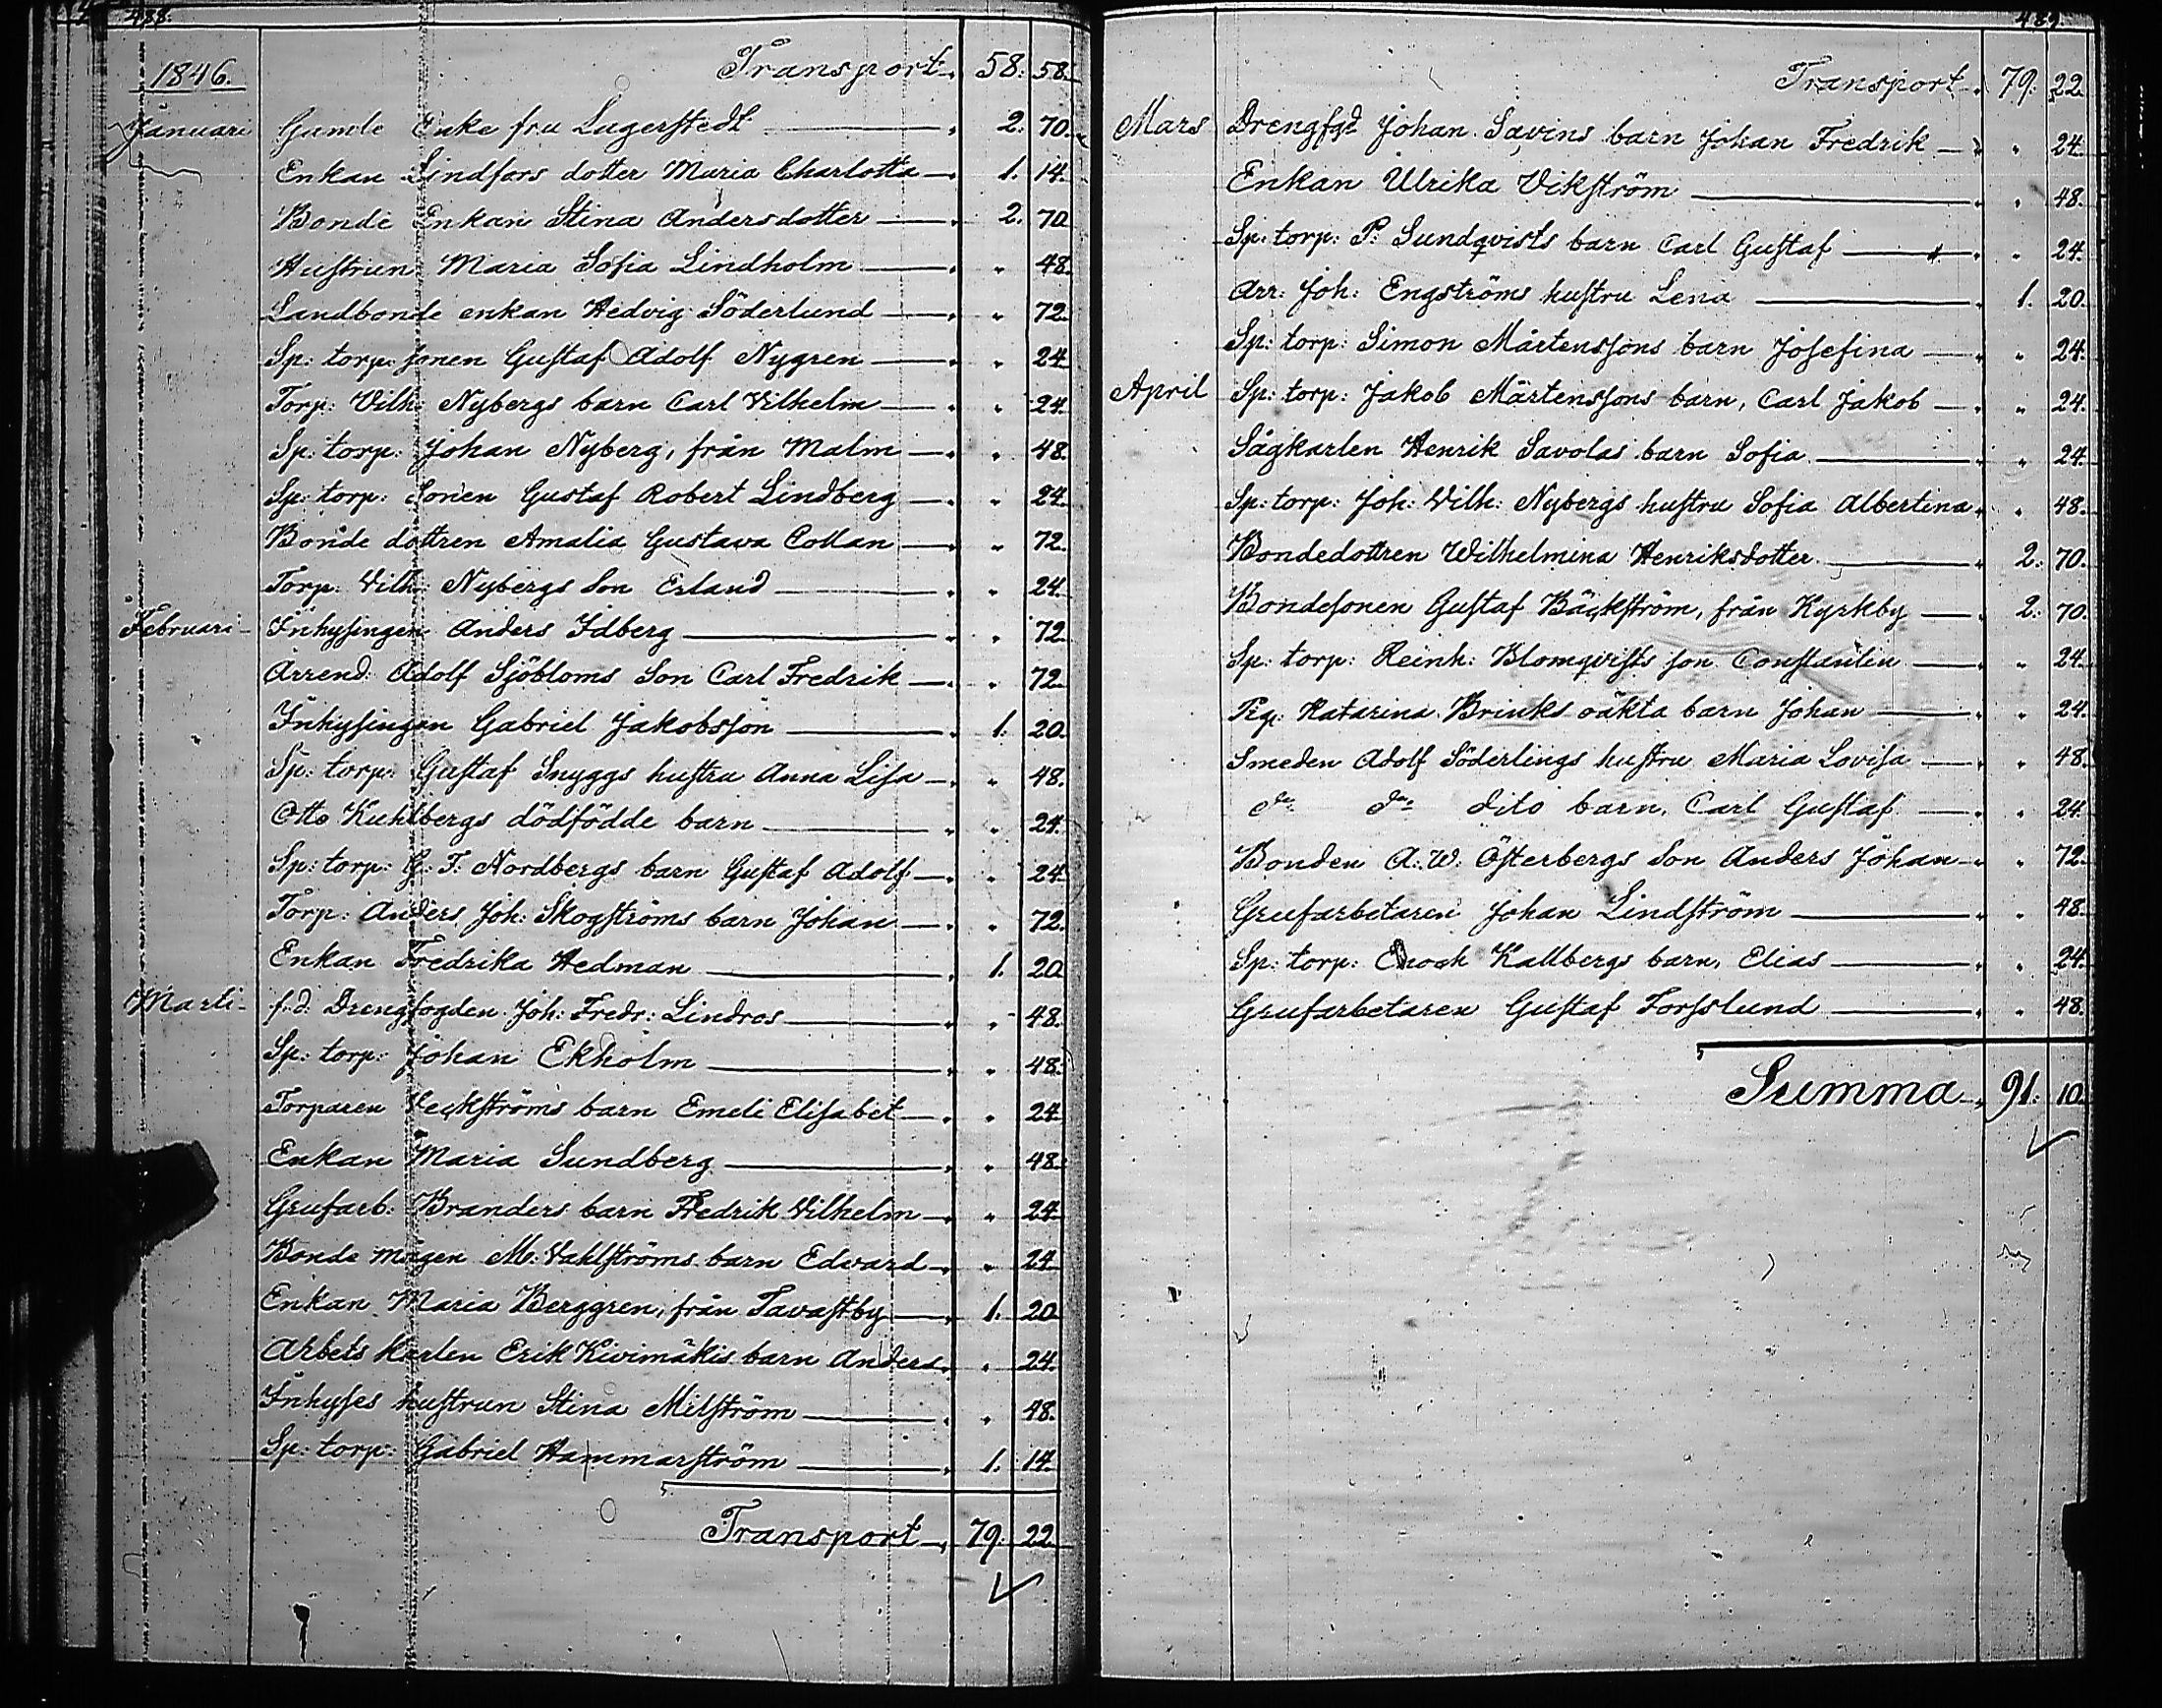 488.
1846. Transport 58: 58.
Januari Gamle Enke fru Lagerstedt 2: 70.
Enkan Lindfors dotter Maria Charlotta 1. 14.
Bonde Enkan Stina Andersdotter 2. 70
Hustrun Maria Sofia Lindholm " 48.
Landbonde enkan Hedvig Söderlund " 72.
Sp: torp: sonen Gustaf Adolf Nygren " 24
Torp: Vilh: Nybergs barn Carl Vilhelm " 24.
Sp: torp: Johan Nyberg, från Malm " 48.
Sp: torp: Sonen Gustaf Robert Lindberg " 24.
Bonde dottren Amalia Gustava Collan " 72.
Torp: Vilh: Nybergs Son Erland " 24.
Februari Inhysingen Anders Idberg " 72.
Arrend: Adolf Sjöbloms Son Carl Fredrik " 72.
Inhysingen Gabriel Jakobsson 1. 20.
Sp: torp: Gustaf Snyggs hustru Anna Lisa " 48.
Otto Kuhlbergs dödfödde barn " 24.
Sp: torp: G: F: Nordbergs barn Gustaf Adolf " 24
Torp: Anders Joh: Skogströms barn Johan " 72.
Enkan Fredrika Hedman 1. 20
Marti f.d. Drengfogden Joh: Fredr: Lindros " 48.
Sp: torp: Johan Ekholm " 48.
Torparen Veckströms barn Emeli Elisabet " 24
Enkan Maria Sundberg " 48.
Grufarb: Branders barn Fredrik Vilhelm " 24
Bonde mågen M: Vahlströms barn Edvard " 24
Enkan Maria Berggren, från Tavastby 1. 20
Arbets karlen Erik Kivimäkis barn Anders " 24.
Inhyses hustrun Stina Milström " 48.
Sp: torp: Gabriel Hammarström 1. 14.
Transport 79: 22
489.
Transport 79: 22.
Mars Drengfgd Johan Savins barn Johan Fredrik " 24.
Enkan Ulrika Vikström " 48.
Sp: torp: P: Sundqvists barn Carl Gustaf " 24.
Arr: Joh: Engströms hustru Lena 1. 20.
Sp: torp: Simon Mårtenssons barn Josefina " 24.
April Sp: torp: Jakob Mårtenssons barn, Carl Jakob " 24.
Sågkarlen Henrik Savolas barn Sofia " 24.
Sp: torp: Joh: Vilh: Nybergs hustru Sofia Albertina " 48.
Bondedottren Wilhelmina Henriksdotter 2: 70.
Bondesonen Gustaf Bäckström, från Kyrkby 2: 70.
Sp: torp: Reinh: Blomqvists son Constantin " 24.
Pig: Katarina Brinks oäkta barn Johan " 24.
Smeden Adolf Söderlings hustru Maria Lovisa " 48.
do do dito barn, Carl Gustaf " 24.
Bonden A: W: Österbergs Son Anders Johan " 72.
Grufarbetaren Johan Lindström " 48.
Sp: torp: Enoch Kallbergs barn, Elias " 24.
Grufarbetaren Gustaf Forsslund " 48.
Summa 91: 10.